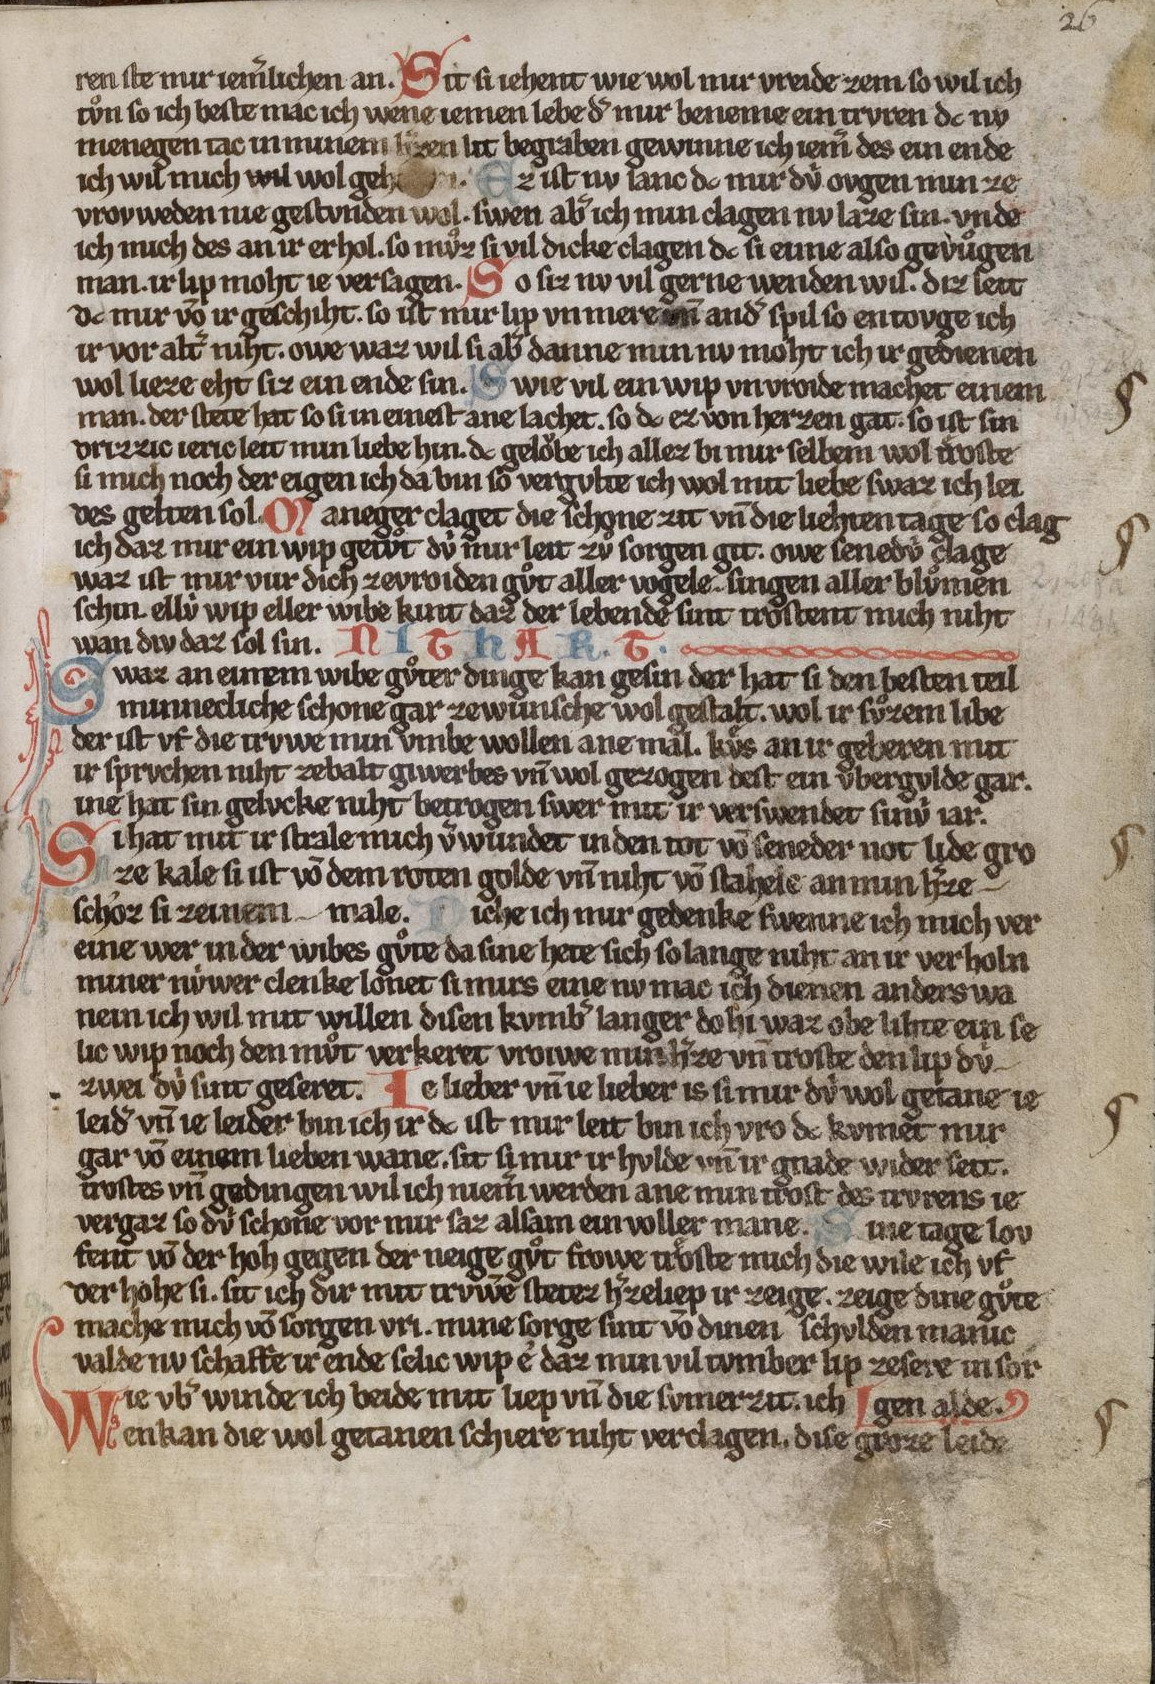 26
ren ste mir iem̄lichen an. Sit si iehent wie wol mir vreide zem so wil ich
tůn so ich beste mac ich wene iemen lebe d' mir beneme ein trvren dc nv
menegen tac in minem h'zen lit begraben gewinne ich iem̄ des ein ende
ich wil mich wil wol geh Ez ist nv lanc dc mir dv̓ ovgen min ze
vrovweden nie gestvnden wol. swen ab' ich min clagen nv laze sin. vnde
ich mich des an ir erhol. so mv̊z si vil dicke clagen dc si eime also gevůgen
man. ir lip moht ie versagen. So siz nv vil gerne wenden wil. diz leit
dc mir vō ir geschiht. so ist mir lip vnmere vn̄ and' spil so entovge ich
ir vor alt' niht. owe waz wil si ab' danne min nv moht ich ir gedienen
wol lieze eht siz ein ende sin. Swie vil ein wip vnvroide machet einem
man. der stete hat so si in einest ane lachet. so dc ez von herzen gat. so ist sin
drizzic ieric leit min liebe hin. dc gelo̊be ich allez bi mir selbem wol troste
si mich noch der eigen ich da bin so vergvlte ich wol mit liebe swaz ich lei
des gelten sol. Maneger claget die schone zit vn̄ die liehten tage so clag
ich daz mir ein wip getv̊t dv̓ mir leit zv̊ sorgen git. owe senedv̓ clage
waz ist mir vur dich zevroiden gv̊t aller vogele singen aller blv̊men
schin. ellv̓ wip eller wibe kint daz der lebende sint trostent mich niht
wan div daz sol sin. NITHART.
Swaz an einem wibe gv̊ter dinge kan gesin der hat si den besten teil
minnecliche schone gar zewunsche wol gestalt. wol ir sv̊zem libe
der ist vf die trvwe min vmbe wollen ane mal. kv̓s an ir geberen mit
ir sprvchen niht zebalt giwerbes vn̄ wol gezogen dest ein v̓bergvlde gar.
me hat sin gelvcke niht betrogen swer mit ir verswendet sinv̓ iar.
Si hat mit ir strale mich v'wundet in den tot vō seneder not lide gro
ze kale si ist vō dem roten golde vn̄ niht vō stahele an min h'ze
schoz si zeinem male. Diche ich mir gedenke swenne ich mich ver
eine wer in der wibes gv̊te da sine hete sich so lange niht an ir verholn
miner nv̓wer clenke lonet si mirs eine nv mac ich dienen anders wa
nein ich wil mit willen disen kvmb' langer doln waz obe lihte ein se
lic wip noch den mv̊t verkeret vroiwe min h'ze vn̄ troste den lip dv̓
zwei dv̓ sint geseret. Ie lieber vn̄ ie lieber is si mir dv̓ wol getane ie
leid' vn̄ ie leider bin ich ir dc ist mir leit bin ich vro dc kvmet mir
gar vō einem lieben wane. sit si mir ir hvlde vn̄ ir gnade wider seit.
trostes vn̄ gedingen wil ich niem̄ werden ane min trost des trvrens ie
vergaz so dv̓ schone vor mir saz alsam ein voller mane. Sine tage lov
fent vō der hoh gegen der neige gv̊t frowe troste mich die wile ich vf
der hohe si. sit ich dir mit trvwē stetez h'zeliep ir zeige. zeige dine gv̊te
mache mich vō sorgen vri. mine sorge sint vō dinen schvlden manic
valde nv schaffe ir ende selic wip e daz min vil tvmber lip zesere in sor
Wie vb' winde ich beide mit liep vn̄ die svmerzit. ich gen alde.
enkan die wol getanen schiere niht verclagen. dise groze leide